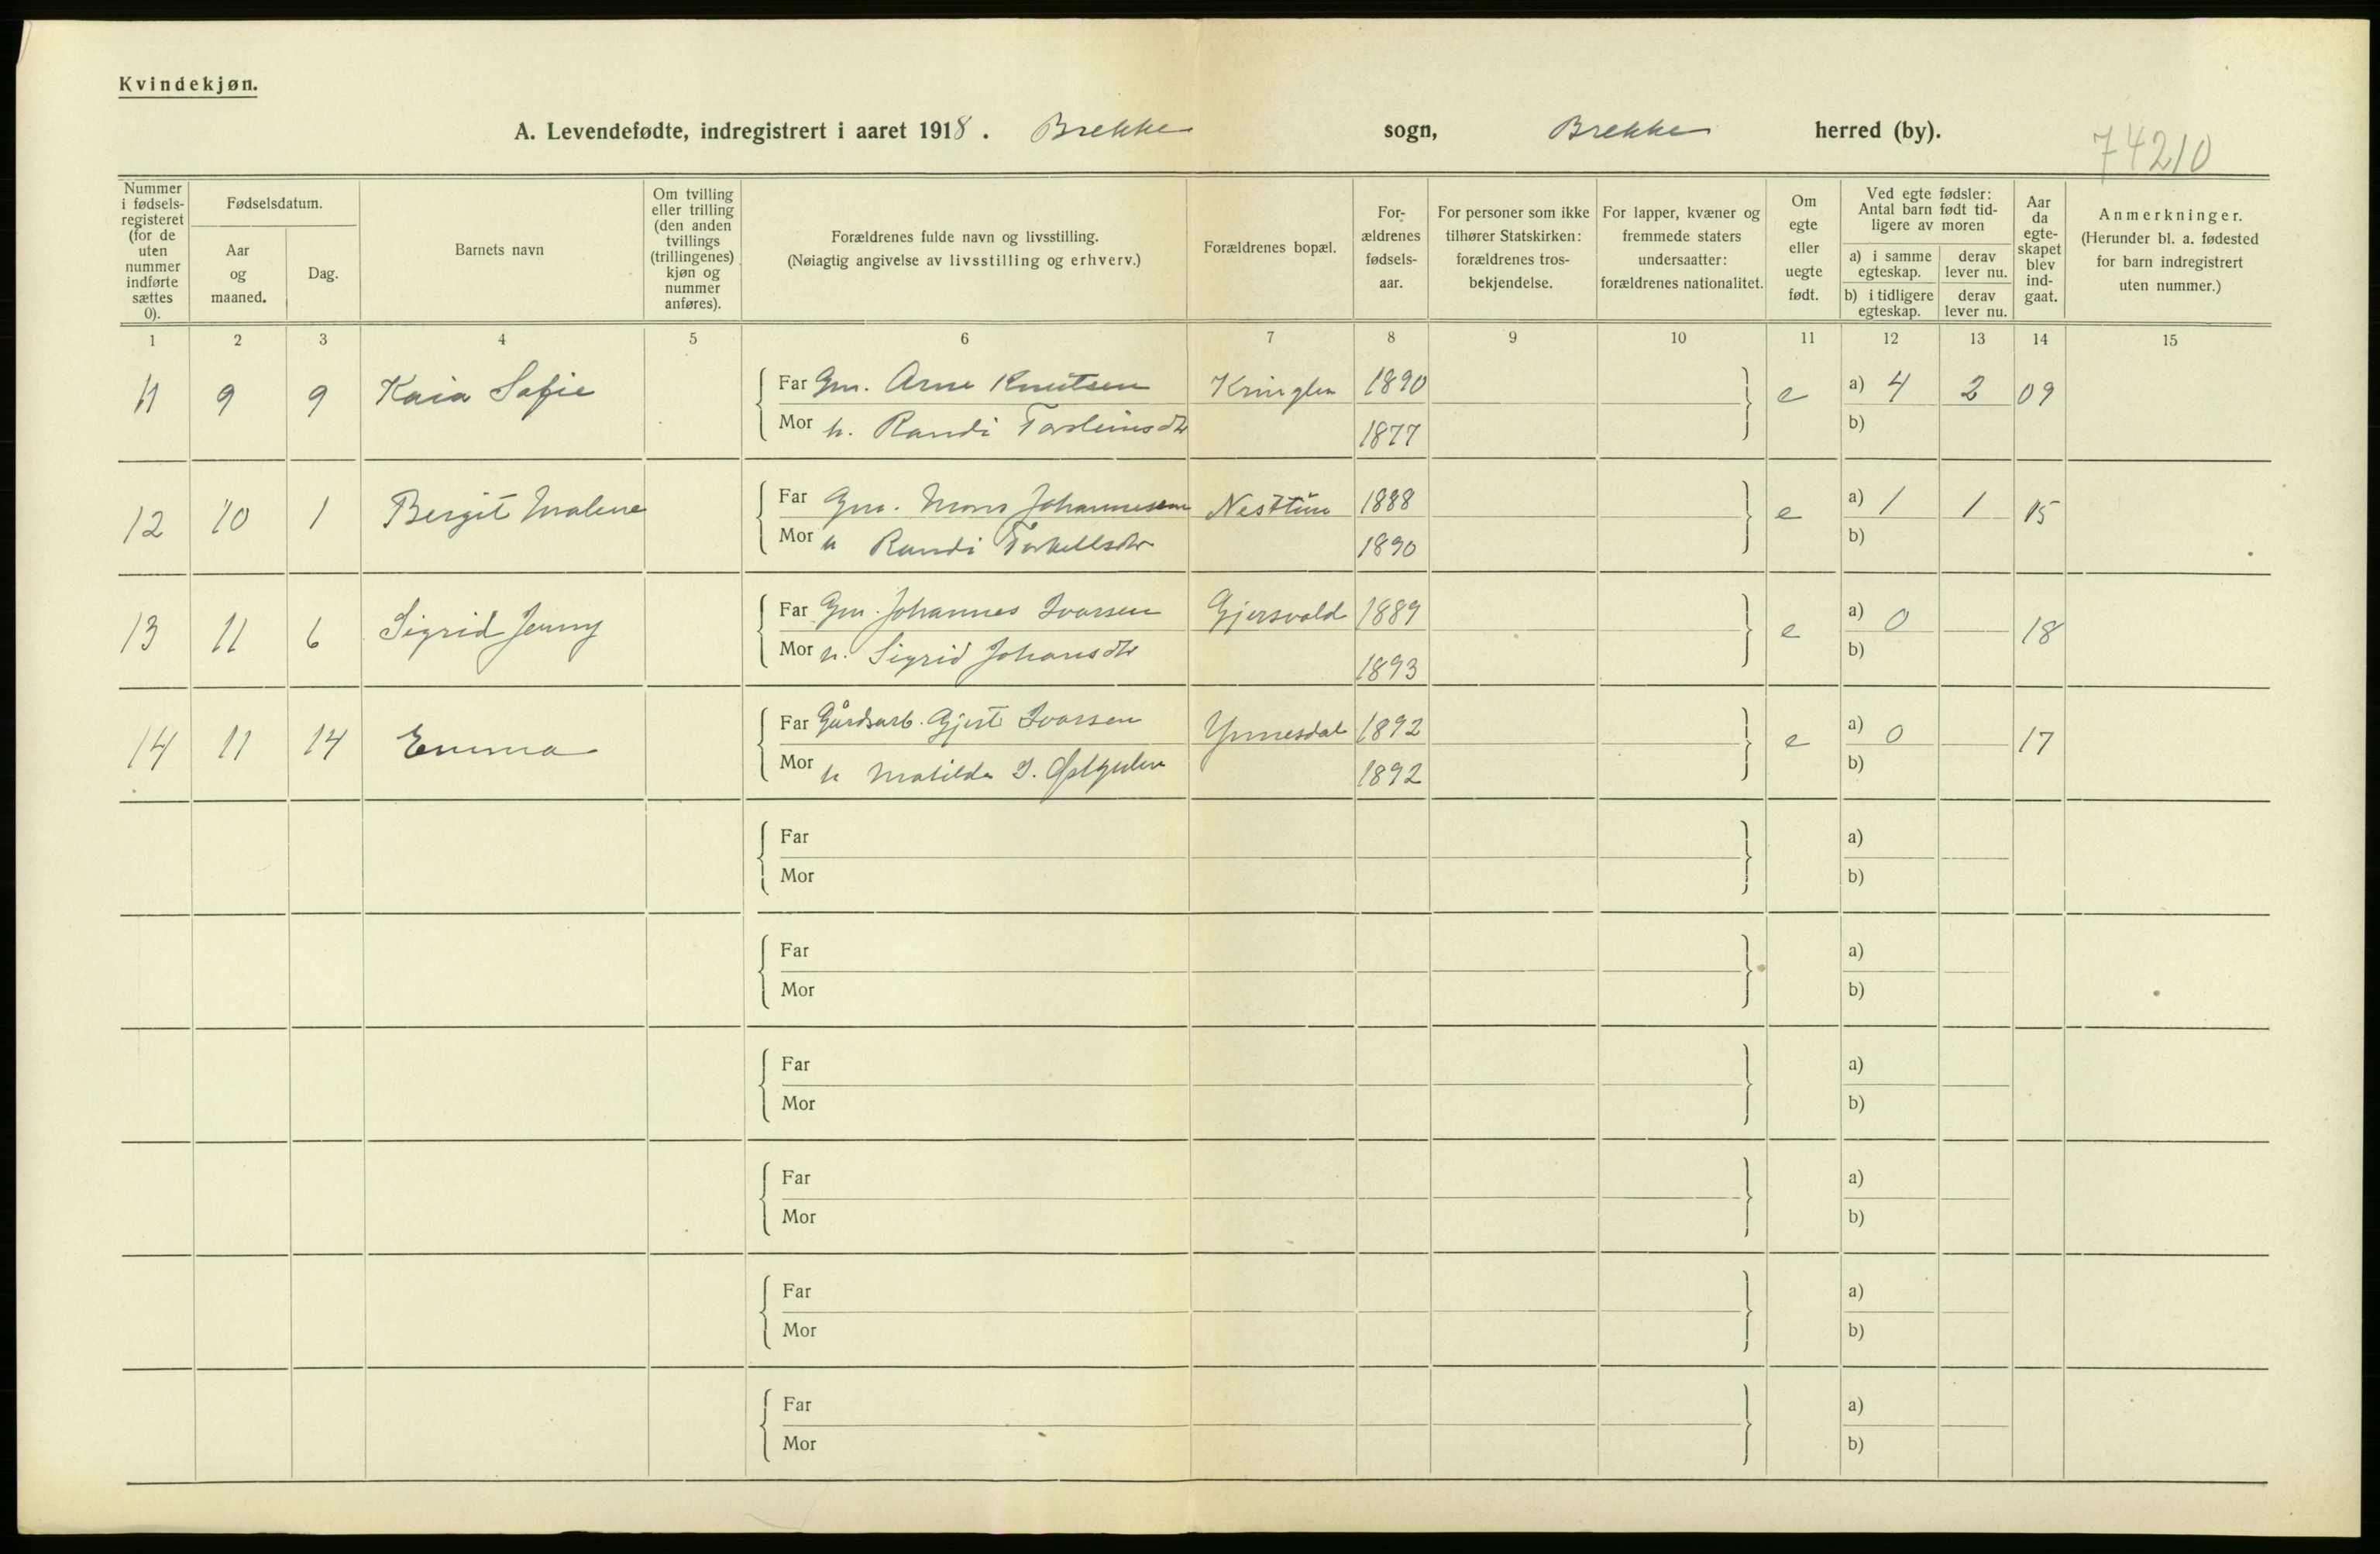 Kvindekjøn.
A. Levendefødte, indregistrert i aaret 1918. Brekke sogn, Brekke herred (by).
74210
Nummer i fødselsregisteret (for de uten nummer indførte sættes 0).
Fødselsdatum.
Aar og maaned.
Dag.
Barnets navn
Om tvilling eller trilling (den anden tvillings (trillingenes) kjøn og nummer anføres).
Forældrenes fulde navn og livsstilling.
(Nøiagtig angivelse av livsstilling og erhverv.)
Forældrenes bopæl.
Forældrenes fødselsaar.
For personer som ikke tilhører Statskirken: forældrenes trosbekjendelse.
For lapper, kvæner og fremmede staters undersaatter: forældrenes nationalitet.
Om egte eller uegte født.
Ved egte fødsler: Antal barn født tidligere av moren
a) i samme egteskap.
derav lever nu.
b) i tidligere egteskap.
derav lever nu.
Aar da egteskapet blev indgaat.
Anmerkninger.
(Herunder bl. a. fødested for barn indregistrert uten nummer.)
1 2 3 4 5 6 7 8 9 10 11 12 13 14 15
11 9 9 Kaia Sofie Far Gm. Arne Knutsen Kringlen 1890 e a) 4 2 09
Mor h. Randi Torsteinsdtr 1877 b)
12 10 1 Bergit Malene Far Gm. Mons Johannessen Nesttun 1888 e a) 1 1 15
Mor h Randi Torkellsdtr 1890 b)
13 11 6 Sigrid Jenny Far Gm. Johannes Ivarsen Gjersvold 1889 e a) 0 — 18
Mor h. Sigrid Johansdtr 1893 b)
14 11 14 Emma Far Gårdsarb. Gjert Ivarsen Ynnesdal 1892 e a) 0 — 17
Mor h Matilde I. Østgulen 1892 b)
Far a)
Mor b)
Far a)
Mor b)
Far a)
Mor b)
Far a)
Mor b)
Far a)
Mor b)
Far a)
Mor b)